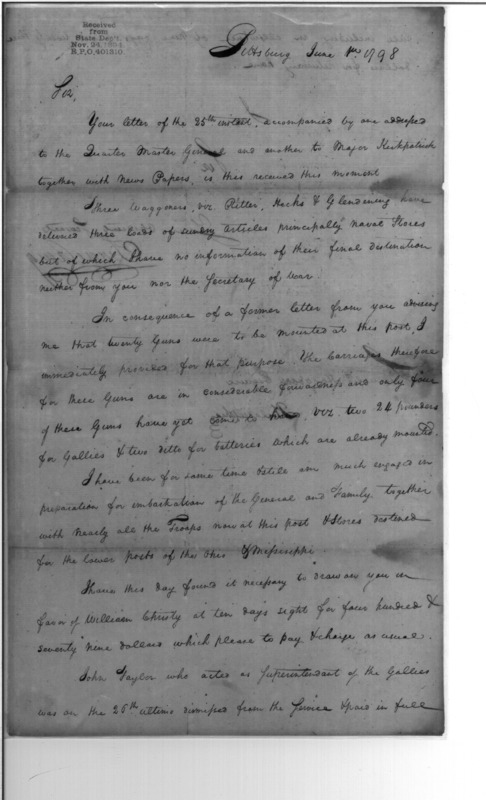 Received
from
State Dept.
Nov. 24, 1894
R.P.O. 401510.
Pittsburg June 1st 1798
Sir,
Your letter of the 25th instant, accompanied by one addressed
to the Quarter Master General and another to Major Kirkpatrick
together with News Papers, is this received this moment
Three Waggoners, viz. Ritter, Hooks & Glendening have
delivered three loads of sundry articles principally naval Stores
but of which I have no information of their final distination
neither from you nor the Secretary of War.
In consequence of a former letter from you advising
me that twenty Guns were to be mounted at this post, I
immediately provided for that purpose. The Carriages therefore
for these Guns are in considerable forwardness and only four
of these Guns have yet come to viz. two 24 pounders
for Gallies & two ditto for batteries which are already mounted.
I have been for some time & still am much engaged in
preparation for embarkation of the General and Family, together
with nearly all the Troops now at this post & Stores destened
for the lower posts of the Ohio & Mississippi.
I have this day found it necessary to draw on you in
favor of William Christy at ten days sight for four hundred &
seventy nine dollars which please to pay & charge as usual.
John Taylor who acted as Superintendant of the Gallies
was on the 25th ultimo dismissed from the Service & paid in full